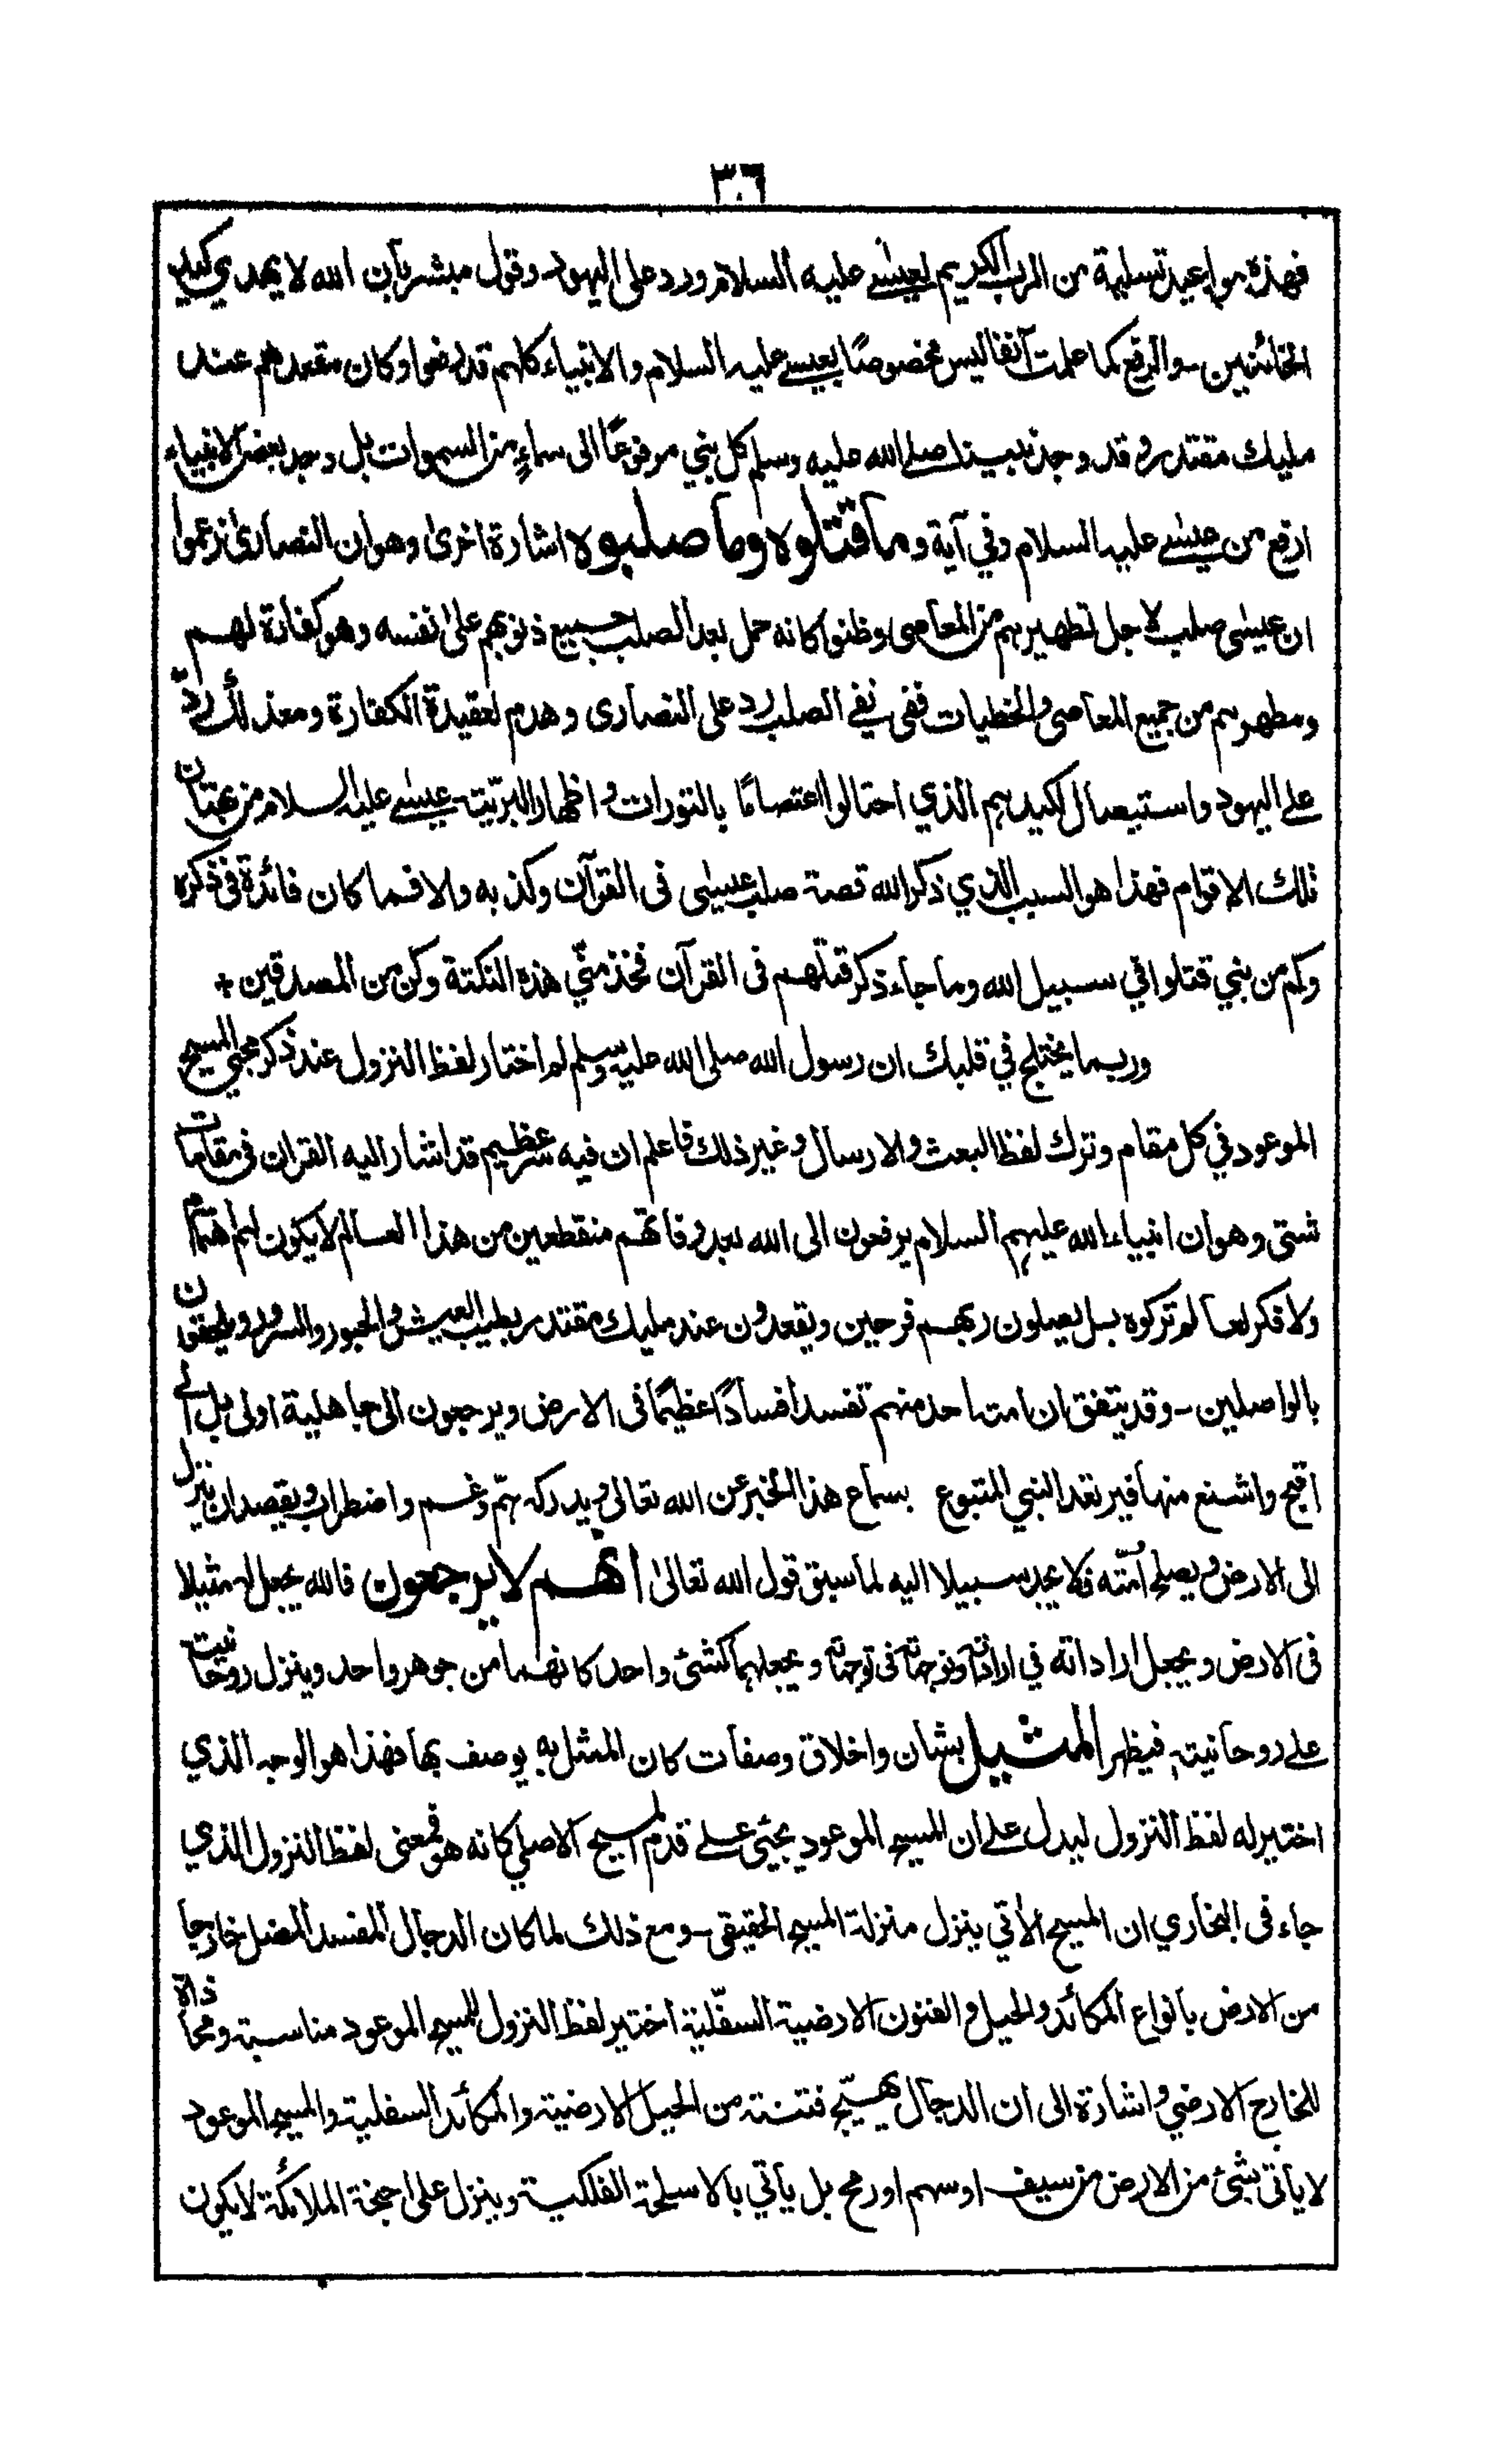 ٣٠٦
فهذه مواعيد تسلية من الرب الكريم لعيسى عليه السلام ورد على اليهود وقول مبشر بأن الله لا يهدي كيد
الخائنين - والرفع كما علمت آنفا ليس مخصوصًا بعيسى عليه السلام والانبياء كلهم قد رفعوا وكان مقعدهم عند
مليك مقتدر وقد وجد نبينا صلى الله عليه وسلم كل نبي مرفوعًا الى سماءٍ من السموات بل وجد بعض الانبياء
ارفع من عيسى عليه السلام وفي آية وما قتلوه وما صلبوه اشارة اخرى وهو ان النصارى زعموا
ان عيسى صلب لاجل تطهيرهم من المعاصى وظنوا كانه حمل بعد الصلب جميع ذنوبهم على نفسه وهو كفارة لهم
ومطهرهم من جميع المعاصى والخطيات ففى نفى الصلب رد على النصارى وهدم لعقيدة الكفارة ومعذلك ردّ
على اليهود واستيصال لكيدهم الذي احتالوا اعتصامًا بالتورات واظهار لبريّت عيسى عليه السلام من بهتان
تلك الاقوام فهذا هو السبب الذي ذكر الله قصة صلب عيسى فى القرآن وكذبه والا فما كان فائدة فى ذكره
وكم من نبي قتلوا في سبيل الله وما جاء ذكر قتلهم فى القرآن فخذ منّي هذه النكتة وكن من المصدقين +
وربما يختلج في قلبك ان رسول الله صلى الله عليه وسلم لم اختار لفظ النزول عند ذكر مجئ المسيح
الموعود في كل مقام وترك لفظ البعث والارسال وغير ذلك فاعلم ان فيه سر عظيم قد اشار اليه القران فى مقامات
شتى وهو ان انبياء الله عليهم السلام يرفعون الى الله بعد وفاتهم منقطعين من هذا العالم لا يكون لهم اهتمام
ولا فكر لعالم تركوه بل يصلون ربهم فرحين ويقعدون عند مليك مقتدر بطيب العيش والحبور والسرور ويلحقون
بالواصلين - وقد يتفق ان امت احد منهم تفسد افسادًا عظيمًا فى الارض ويرجعون الى جاهلية اولى بل الى
اقبح واشنع منها فيرتعد النبي المتبوع بسماع هذا الخبر عن الله تعالى ويدركه همّ وغم واضطراب ويقصد ان ينزل
الى الارض ويصلح اُمّته فلا يجد سبيلا اليه لما سبق قول الله تعالى انهم لا يرجعون فالله يجعل له مثيلا
فى الارض ويجعل اراداته في اراداته وتوجهاته فى توجهاته ويجعلهما كشئ واحد كانهما من جوهر واحد وينزل روحانيت
على روحانيته فيظهر المثيل بشان واخلاق وصفات كان الممثل به يوصف بها فهذا هو الوجه الذي
اختير له لفظ النزول ليدل على ان المسيح الموعود يجئ على قدم المسيح الاصلي كانه هو فمعنى لفظ النزول الذي
جاء فى البخاري ان المسيح الآتي ينزل منزلة المسيح الحقيقى - ومع ذلك لما كان الدجال المفسد المضل خارجا
من الارض بانواع المكائد والحيل والفنون الارضية السفلية اختير لفظ النزول للمسيح الموعود مناسبة ومحاذاة
للخارج الارضي واشارة الى ان الدجال يهيّج فتنته من الحيل الارضية والمكائد السفلية والمسيح الموعود
لا يأتى بشئ من الارض من سيف او سهم او رمح بل يأتي بالاسلحة الفلكية وينزل على اجنحة الملائكة لا يكون